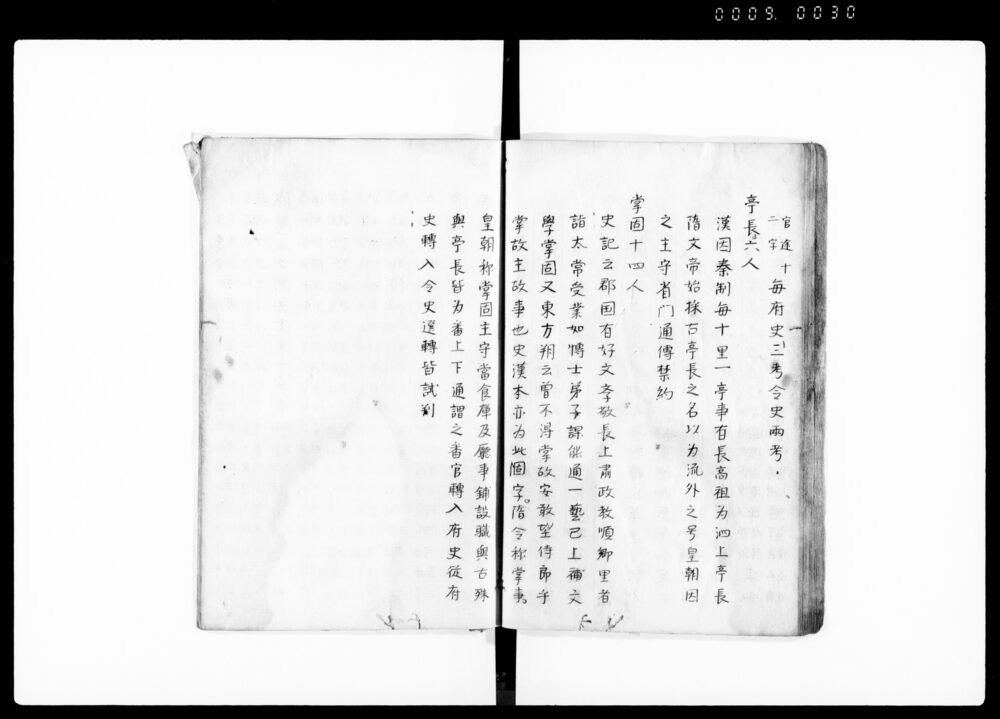 0009. 0030
官途十
二字
每府史三考令史兩考
亭長六人
漢因秦制每十里一亭事有長高祖为泗上亭長
隋文帝始採古亭長之名以为流外之号皇朝因
之主守省门通傳禁約
掌固十四人
史記云郡国有好文孝敬長上肅政教順鄉里者
詣太常受業如博士弟子課能通一藝已上補文
學掌固又東方朔云曾不得掌故安敢望侍郎乎
掌故主故事也史漢本亦为此固字。隋令称掌事。
皇朝称掌固主守當食庫及廳事鋪設職與古殊
與亭長皆为番上下通謂之番官轉入府史從府
史轉入令史選轉皆試判